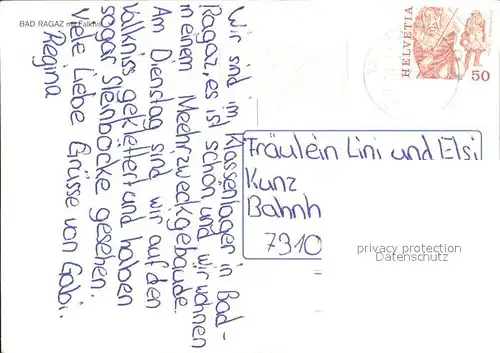 BAD RAGAZ mit Falknis
Wir sind im Klassenlager in Bad-
Ragaz, es ist schön und wir wohnen
in einem Meehrzweckgebäude.
Am Dienstag sind wir auf den
Valkniss geklettert und haben
sogar Steinböcke gesehen.
Viele Liebe Grüsse von Gabi.
Regina
HELVETIA
50
Fräulein Lini und Elsi
Kunz
Bahnh
7310
privacy protection
Datenschutz